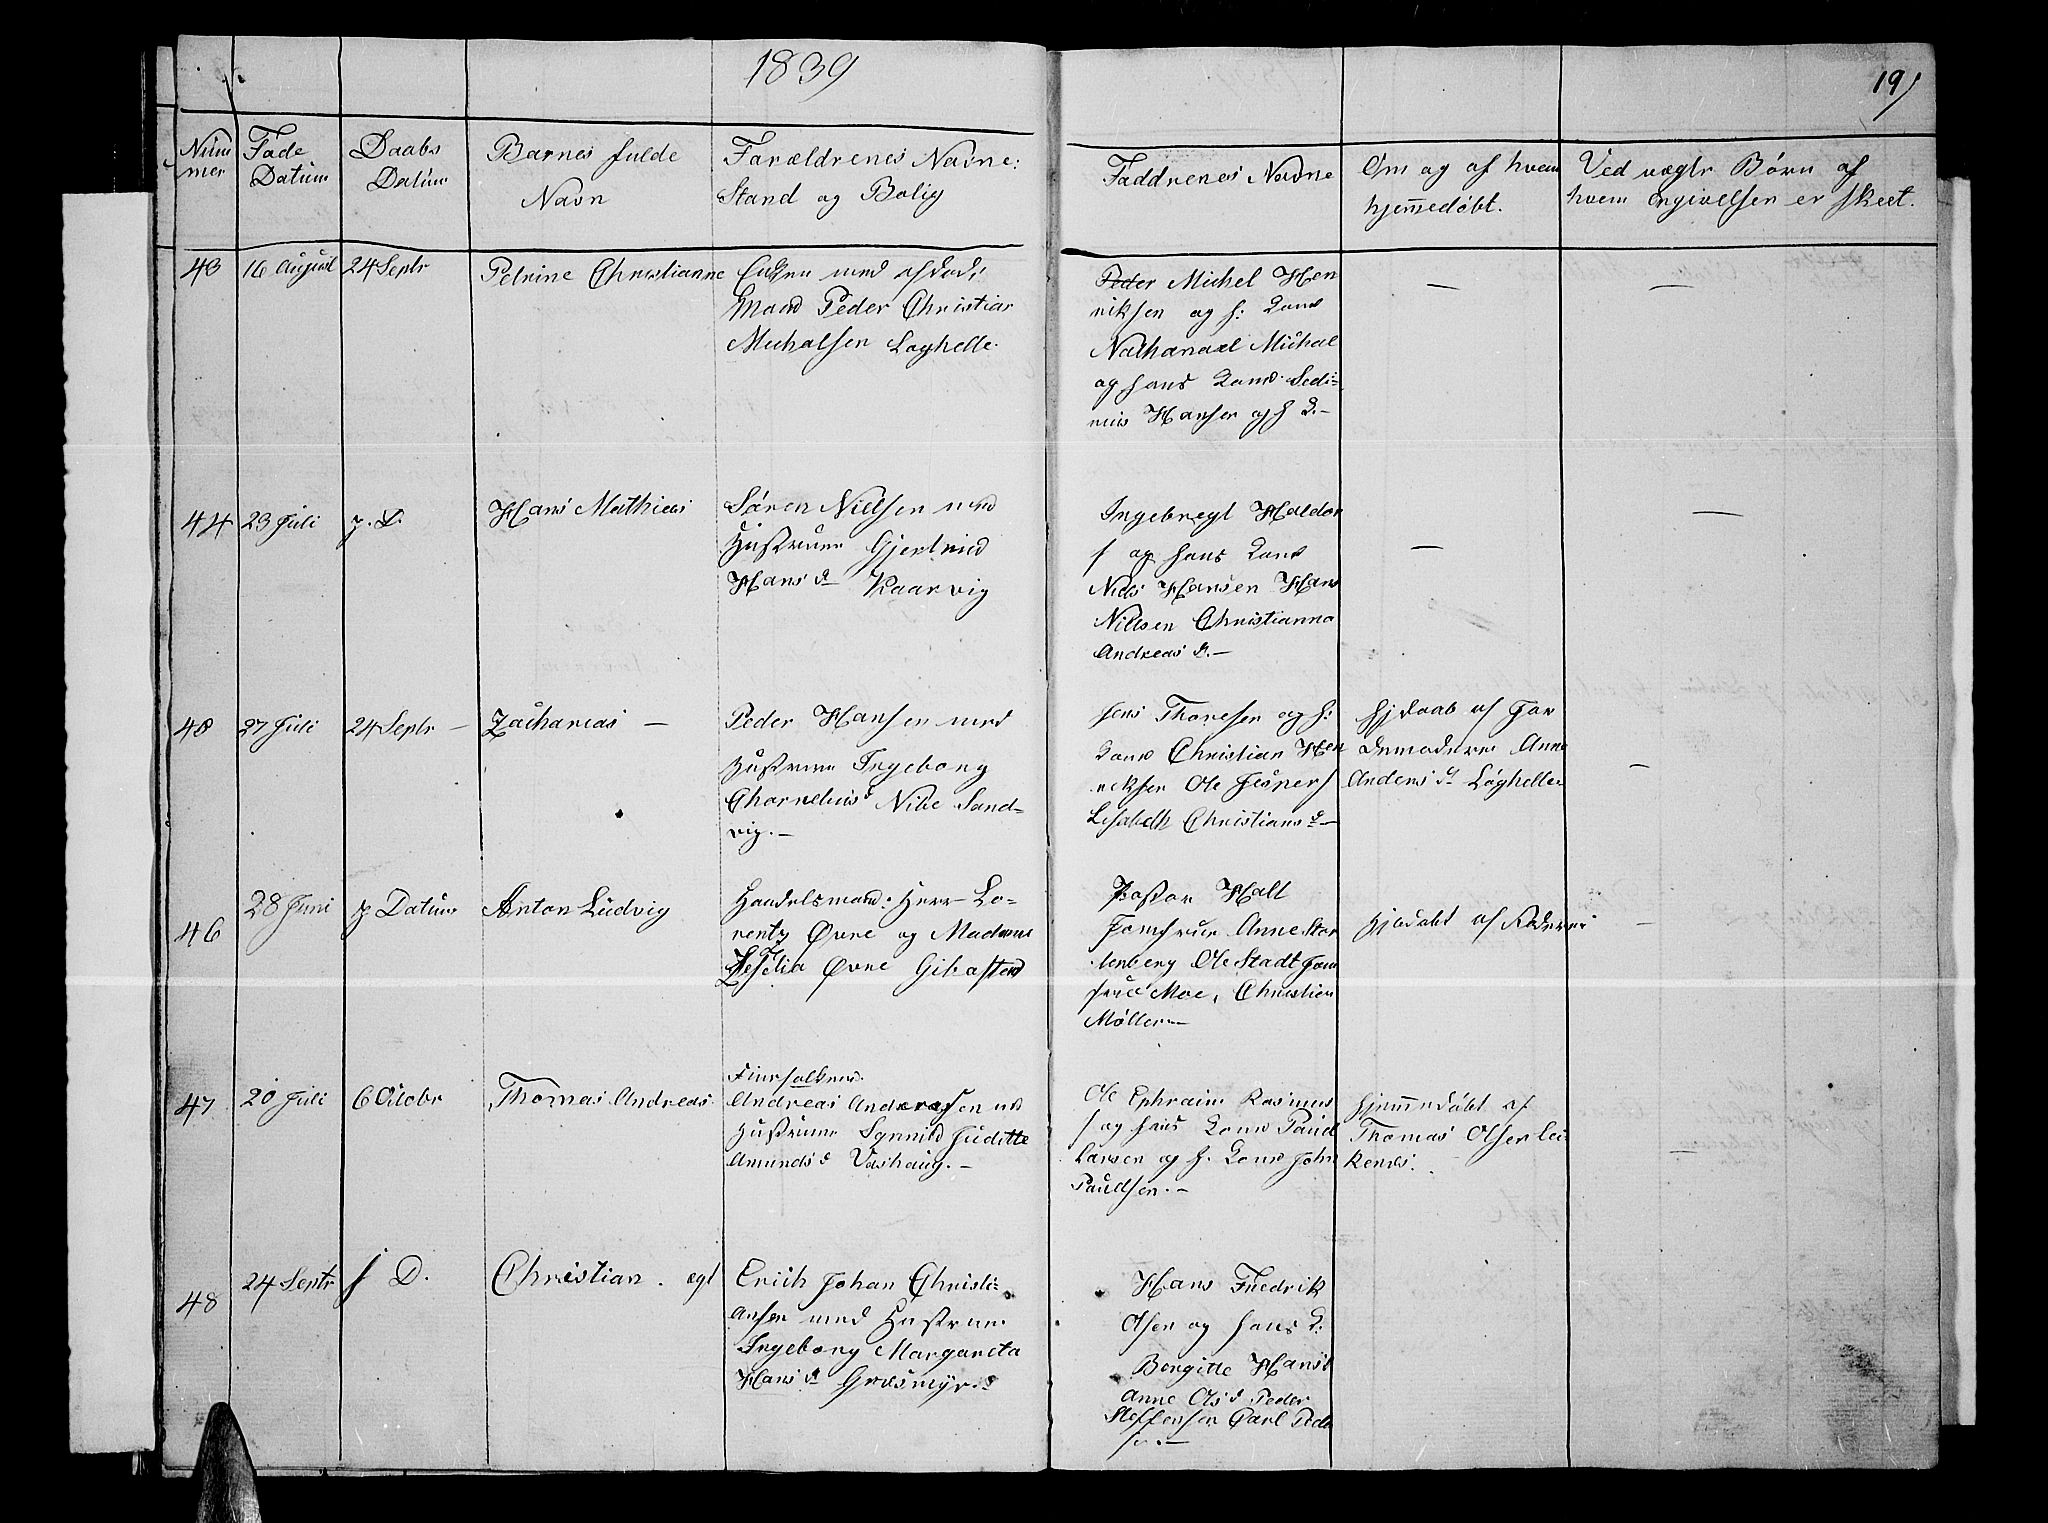 1839
19
Num
mer
Føde
Datum
Daabs
Datum
Barnes fulde
Navn
Forældrenes Navne:
Stand og Bolig
Faddrenes Navne
Om og af hvem
hjemmedøbt.
Ved uægte Børn af
hvem Angivelsen er skeet.
43
16 August
24 Septr
Petrine Christianne
Enken med afdøde
Mand Peder Christian
Michalsen Løghelle.
Peder Michel Hen
riksen og h: Kone
Nathanael Michal
og hans Kone Sedi-
nius Hansen og h K.-
—
—
44
23 Juli
p. D.
Hans Mathias
Søren Nielsen med
Hustrue Gjertrud
Hans d Kaarvig
Ingebregt Haldor
s og hans Kone
Niels Hansen Hans
Nilsen Christianna
Andreas d.—
—
—
48
27 Juli
24 Septr —
Zacharias —
Peder Hansen med
Hustrue Ingeborg
Chornelius d Nibe Sand-
vig.—
Jens Thoresen og h:
Kone Christian Hen
riksen Ole Jespers
Lisabeth Christians d—
Hjdaab af Jor
demoderen Anne
Anders d Løghelle
—
46
28 Juni
p Datum
Anton Ludvig
Handelsmand: Herr Lo-
rentz Øvre og Madame
Øvre Gibostad
Pastor Halt
Jomfrue Anne Stor
mberg Ole Stadt Jom
frue Moe, Christian
Møller—
Hjedøbt af Faderen
—
47
20 Juli
6 Octobr
Thomas Andreas
Finnfolkene
Andreas Andersen med
Hustrue Synnild Juditte
Amunds d Vashaug.—
Ole Ephraim Rasmus
s og hans Kone Paul
Larsen og h. Kone John
Paulsen.—
Hjemmedøbt af
Thomas Olsen Lei
kenes.
—
48
24 Septr
s D.
Christian. ægt
Erich Johan Christi-
ansen med Hustrue
Ingeborg Margareta
Hans d Græsmyr
Hans Fredrik
Olsen og hans K:
Borgitte Hansd
Anne Ols d Peder
Steffensen Carl Peder
s.—